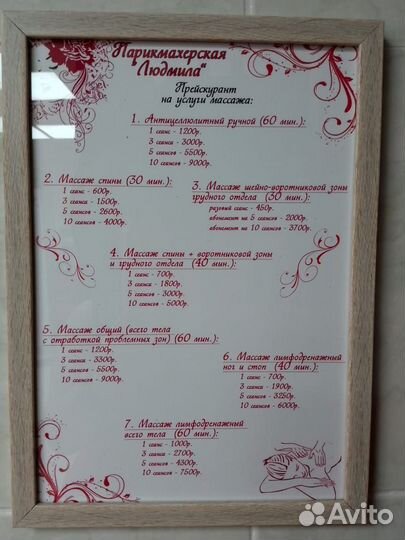 Парикмахерская
"Людмила"
Прейскурант
на услуги массажа:
1. Антицеллюлитный ручной (60 мин.):
1 сеанс - 1200р.
3 сеанса - 3000р.
5 сеансов - 5500р.
10 сеансов - 9000р.
2. Массаж спины (30 мин.):
1 сеанс - 600р.
3 сеанса - 1500р.
5 сеансов - 2600р.
10 сеансов - 4000р.
3. Массаж шейно-воротниковой зоны
грудного отдела (30 мин.):
разовый сеанс - 450р.
абонемент на 5 сеансов - 2000р.
абонемент на 10 сеансов - 3700р.
4. Массаж спины + воротниковой зоны
и грудного отдела (40 мин.):
1 сеанс - 700р.
3 сеанса - 1800р.
5 сеансов - 3000р.
10 сеансов - 5000р.
5. Массаж общий (всего тела
с отработкой проблемных зон) (60 мин.):
1 сеанс - 1200р.
3 сеанса - 3300р.
5 сеансов - 5500р.
10 сеансов - 9000р.
6. Массаж лимфодренажный
ног и стоп (40 мин.):
1 сеанс - 700р.
3 сеанса - 1900р.
5 сеансов - 3250р.
10 сеансов - 6000р.
7. Массаж лимфодренажный
всего тела (60 мин.):
1 сеанс - 1000р.
3 сеанса - 2700р.
5 сеансов - 4300р.
10 сеансов - 7500р.
Avito